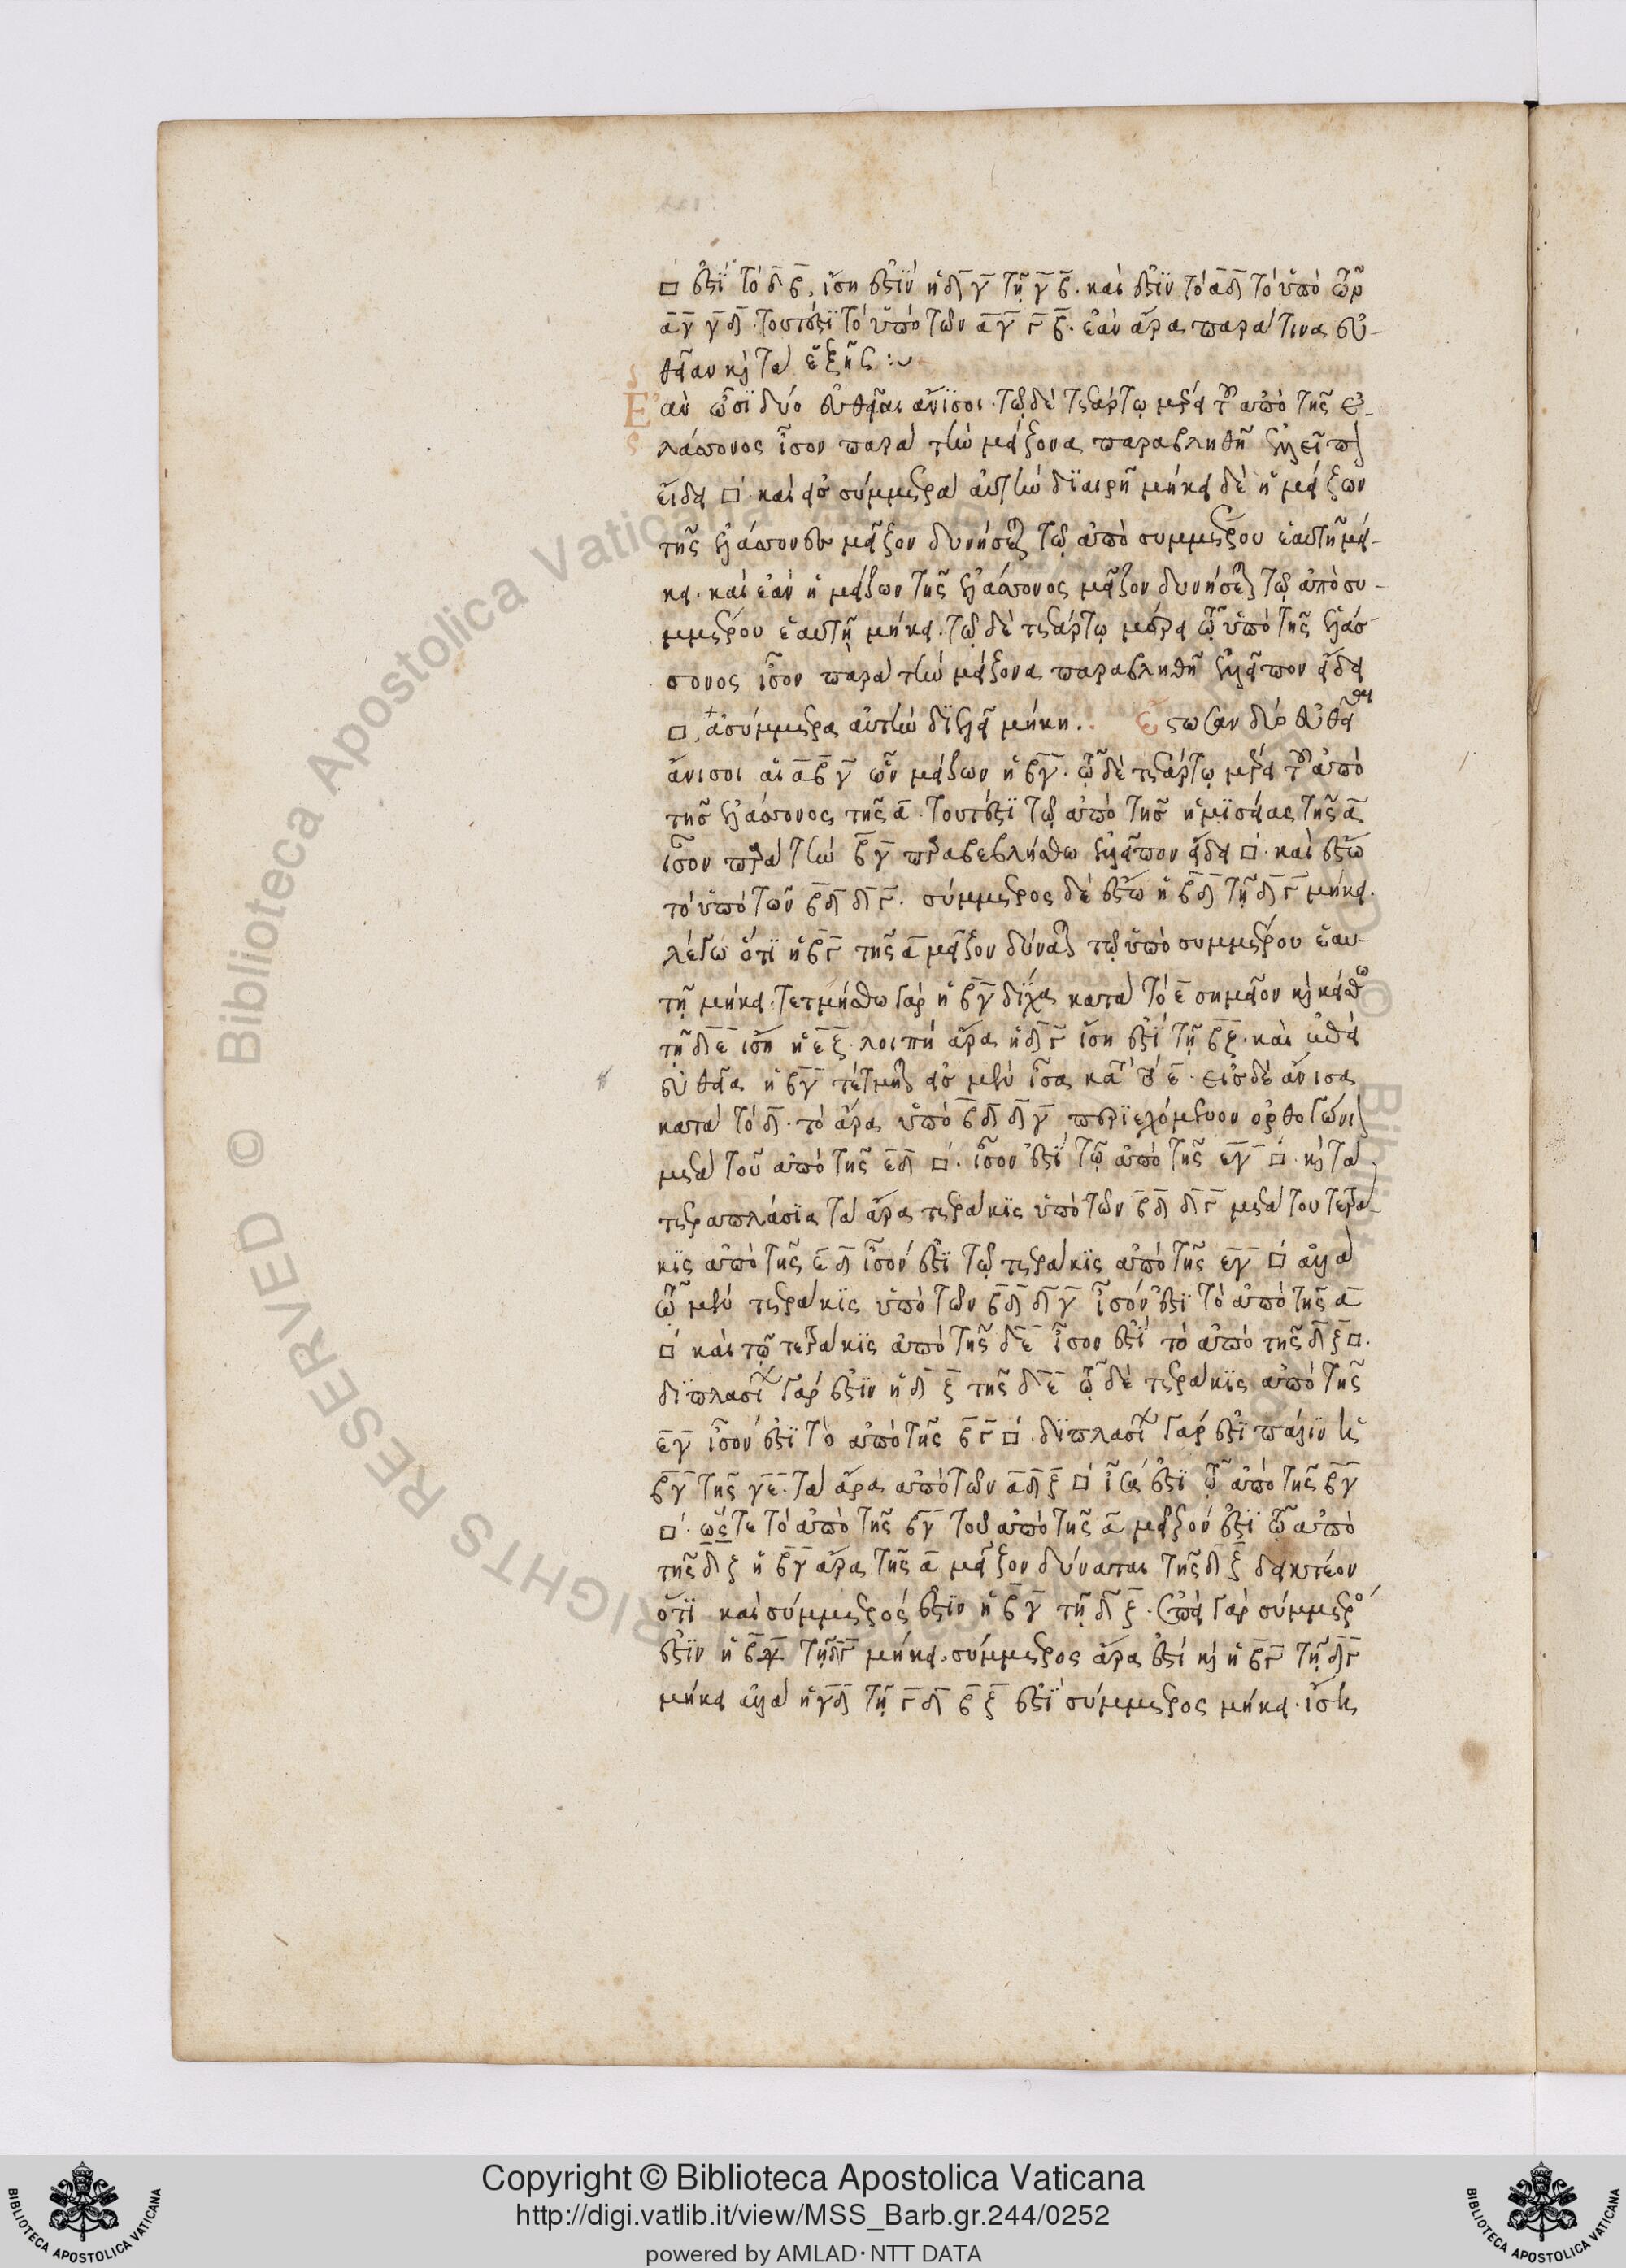 □ ἐστὶ τὸ δ̅β̅, ἴση ἐστὶν ἡ δ̅γ̅ τῇ γ̅β̅. καὶ ἐστὶν τὸ α̅δ̅ τὸ ὑπὸ τῶν
α̅γ̅ γ̅δ̅. τουτέστι τὸ ὑπὸ τῶν α̅γ̅ γ̅β̅. ἐὰν ἄρα παρά τινα εὐ-
θεῖαν καὶ τὰ ἑξῆς :~
Ἐὰν ὦσι δύο εὐθεῖαι ἄνισοι. τῷ δὲ τετάρτῳ μέρει τοῦ ἀπὸ τῆς ἐ-
λάσσονος ἴσον παρὰ τὴν μείζονα παραβληθῇ ἐλλεῖπον
εἴδει □. καὶ εἰς σύμμετρα αὐτὴν διαιρῇ μήκει δὲ ἡ μείζων
τῆς ἐλάσσονος μεῖζον δυνήσεται τῷ ἀπὸ συμμέτρου ἑαυτῇ μή-
κει. καὶ ἐὰν ἡ μείζων τῆς ἐλάσσονος μεῖζον δυνήσεται τῷ ἀπὸ συ-
μμέτρου ἑαυτῇ μήκει. τῷ δὲ τετάρτῳ μέρει τῷ ὑπὸ τῆς ἐλάσ-
σονος ἴσον παρὰ τὴν μείζονα παραβληθῇ ἐλλεῖπον εἴδει
□, ἀσύμμετρα αὐτὴν διελεῖ μήκη. ἔστωσαν δύο εὐθεῖαι
ἄνισοι αἱ α̅ β̅γ̅ ὧν μείζων ἡ β̅γ̅. τῷ δὲ τετάρτῳ μέρει τοῦ ἀπὸ
τῆς ἐλάσσονος τῆς α̅. τουτέστι τῷ ἀπὸ τῆς ἡμισείας τῆς α̅
ἴσον παρὰ τὴν β̅γ̅ παραβεβλήσθω ἐλλεῖπον εἴδει □. καὶ ἔστω
τὸ ὑπὸ τῶν β̅δ̅ δ̅γ̅. σύμμετρος δὲ ἔστω ἡ β̅δ̅ τῇ δ̅γ̅ μήκει.
λέγω ὅτι ἡ β̅γ̅ τῆς α̅ μεῖζον δύναται τῷ ὑπὸ συμμέτρου ἑαυ-
τῇ μήκει. τετμήσθω γὰρ ἡ β̅γ̅ δίχα κατὰ τὸ ε̅ σημεῖον καὶ κείσθω
τῇ δ̅ε̅ ἴση ἡ ε̅ζ̅. λοιπὴ ἄρα ἡ δ̅γ̅ ἴση ἐστὶ τῇ β̅ζ̅. καὶ ἐπεὶ
εὐθεῖα ἡ β̅γ̅ τέτμηται εἰς μὲν ἴσα κατὰ τὸ ε̅. εἰς δὲ ἄνισα
κατὰ τὸ δ̅. τὸ ἄρα ὑπὸ β̅δ̅ δ̅γ̅ περιεχόμενον ὀρθογώνιον
μετὰ τοῦ ἀπὸ τῆς ε̅δ̅ □. ἴσον ἐστὶ τῷ ἀπὸ τῆς ε̅γ̅ □. καὶ τὰ
τετραπλάσια τὰ ἄρα τετράκις ὑπὸ τῶν β̅δ̅ δ̅γ̅ μετὰ τοῦ τετρά-
κις ἀπὸ τῆς ε̅δ̅ ἴσον ἐστὶ τῷ τετράκις ἀπὸ τῆς ε̅γ̅ □ ἀλλὰ
τῷ μὲν τετράκις ὑπὸ τῶν β̅δ̅ δ̅γ̅ ἴσον ἐστὶ τὸ ἀπὸ τῆς α̅
□ καὶ τῷ τετράκις ἀπὸ τῆς δ̅ε̅ ἴσον ἐστὶ τὸ ἀπὸ τῆς δ̅ζ̅ □.
διπλασία γάρ ἐστιν ἡ δ̅ζ̅ τῆς δ̅ε̅ τῷ δὲ τετράκις ἀπὸ τῆς
ε̅γ̅ ἴσον ἐστὶ τὸ ἀπὸ τῆς β̅γ̅ □. διπλασία γάρ ἐστι πάλιν ἡ
β̅γ̅ τῆς γ̅ε̅. τὰ ἄρα ἀπὸ τῶν α̅ δ̅ζ̅ □ ἴσα ἐστὶ τῷ ἀπὸ τῆς β̅γ̅
□. ὥστε τὸ ἀπὸ τῆς β̅γ̅ τοῦ ἀπὸ τῆς α̅ μεῖζόν ἐστι τῷ ἀπὸ
τῆς δ̅ζ̅ ἡ β̅γ̅ ἄρα τῆς α̅ μεῖζον δύναται τῆς δ̅ζ̅ δεικτέον
ὅτι καὶ σύμμετρός ἐστιν ἡ β̅γ̅ τῇ δ̅ζ̅. ἐπεὶ γὰρ σύμμετρος
ἐστὶν ἡ τῇ δ̅γ̅ μήκει. σύμμετρος ἄρα ἐστὶ καὶ ἡ β̅γ̅ τῇ δ̅γ̅
μήκει ἀλλὰ ἡ γ̅δ̅ τῇ γ̅δ̅ β̅ζ̅ ἐστὶ σύμμετρος μήκει. ἴση
Copyright © Biblioteca Apostolica Vaticana
http://digi.vatlib.it/view/MSS_Barb.gr.244/0252
powered by AMLAD·NTT DATA